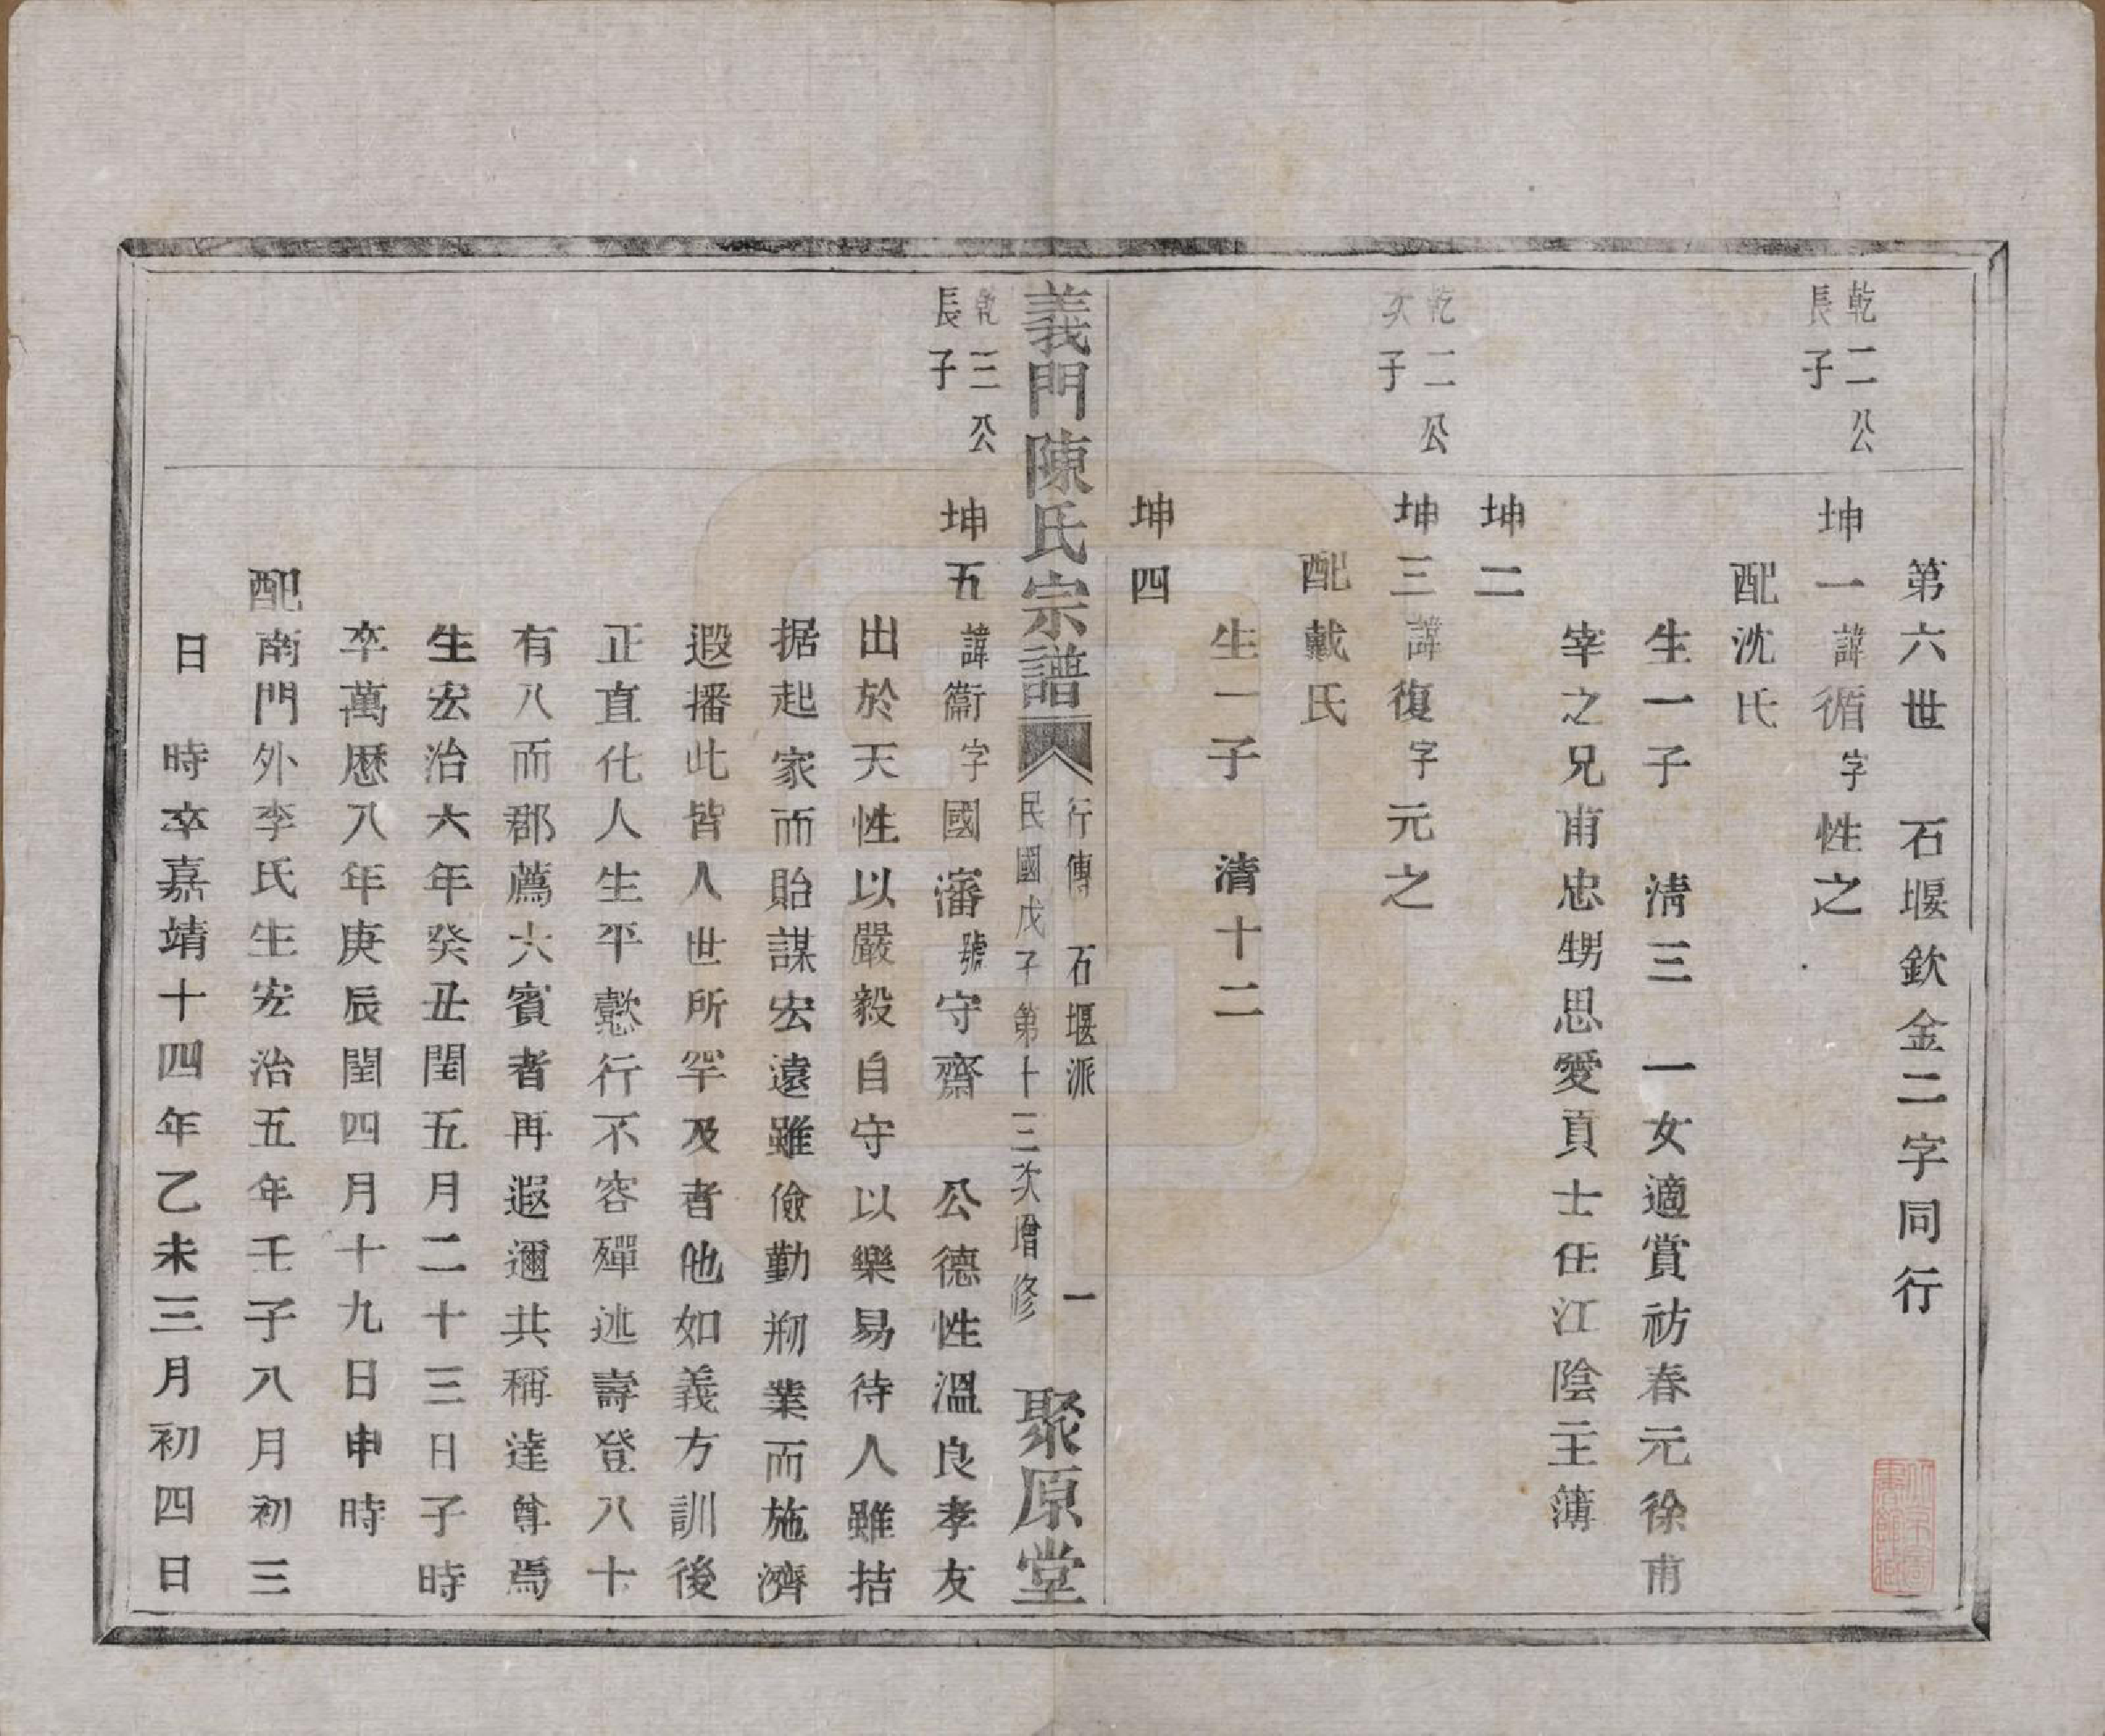 第六世　石堰欽金二字同行
乾二公
長子
坤一諱循字性之
配沈氏
生一子　淸三　一女適賞祊春元徐甫
宰之兄甫忠甥思愛貢士任江陰主簿
坤二
乾二公
次子
坤三諱復字元之
配戴氏
生一子　清十二
坤四
義門陳氏宗譜
行傳　石堰派　一
民國戊子第十三次增修
聚原堂
乾三公
長子
坤五諱衞字國瀋號守齋　公德性溫良孝友
出於天性以嚴毅自守以樂易待人雖拮
据起家而貽謀宏遠雖儉勤剏業而施濟
遐播此皆人世所罕及者他如義方訓後
正直化人生平懿行不容殫述壽登八十
有八而郡薦六賓者再遐邇共稱達尊焉
生宏治六年癸丑閏五月二十三日子時
卒萬歷八年庚辰閏四月十九日申時
配南門外李氏生宏治五年壬子八月初三
日　時卒嘉靖十四年乙未三月初四日